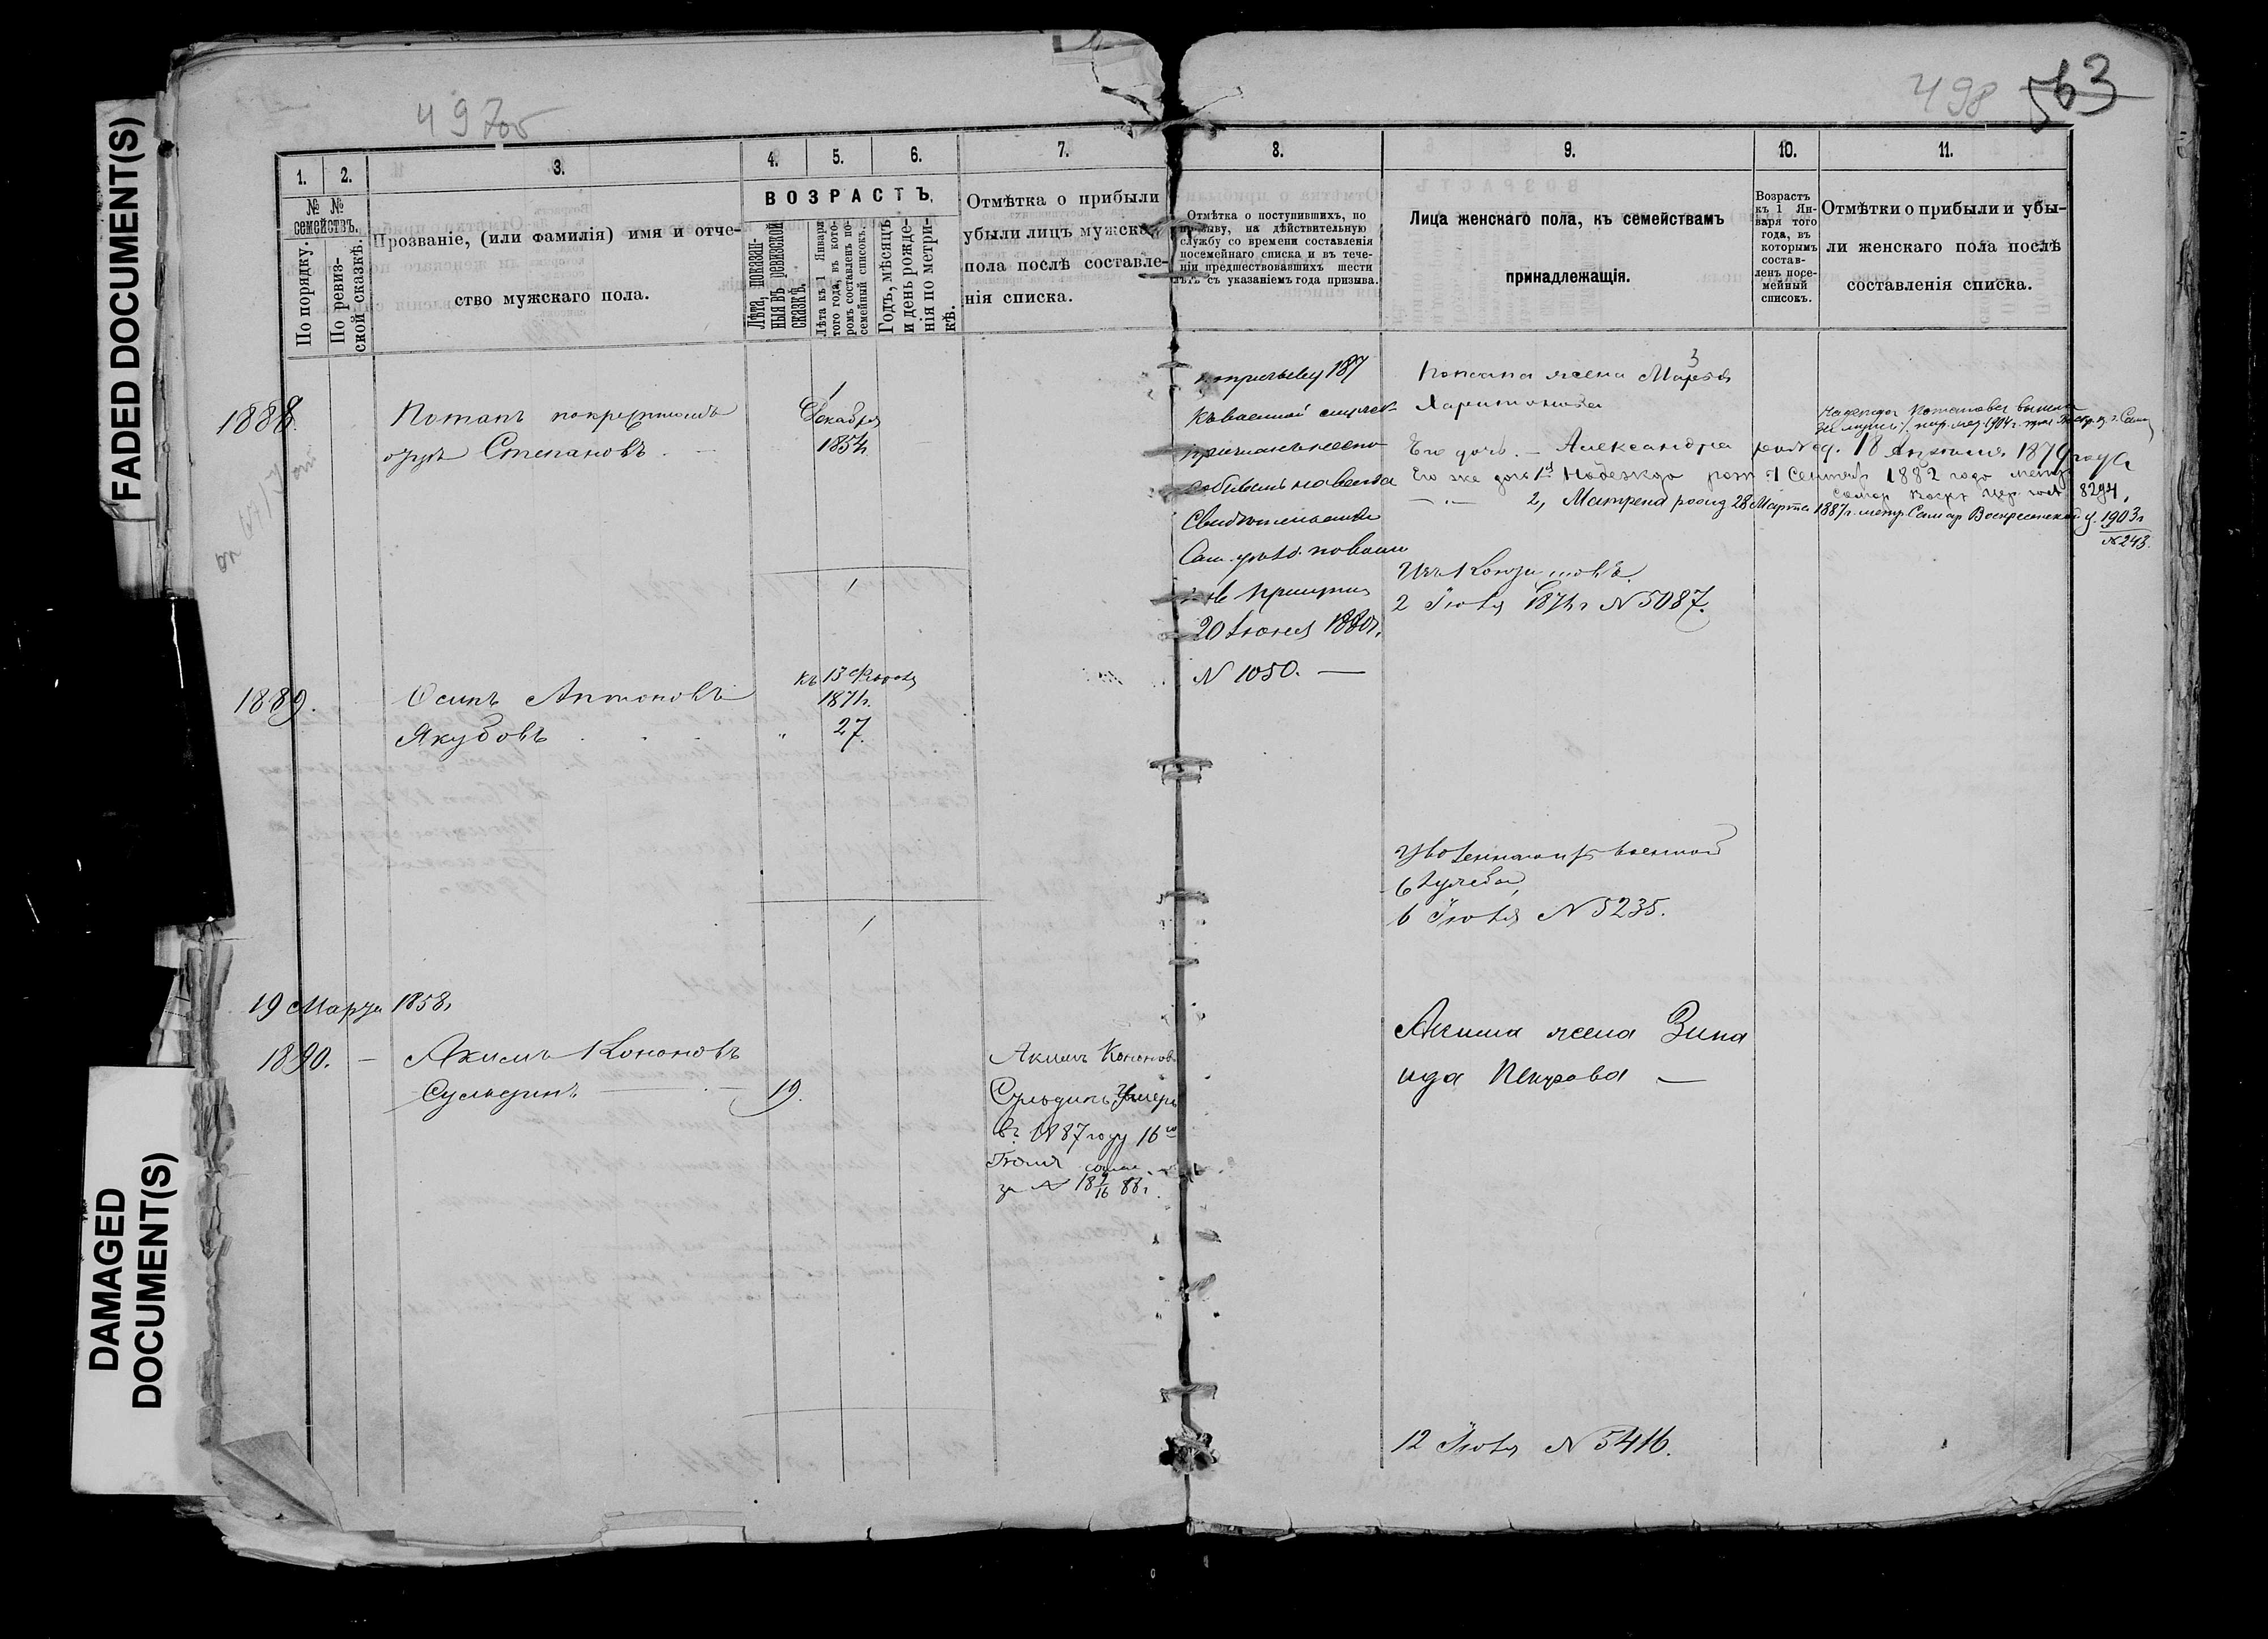 FADED DOCUMENT(S)
DAMAGED
DOCUMENT(S)
497об
498 563
1. 2. 3. 4. 5. 6. 7. 8. 9. 10. 11.
№ №
семействъ.
По порядку.
По ревиз-
ской сказкѣ.
Прозваніе, (или фамилія) имя и отче-
ство мужскаго пола.
ВОЗРАСТЪ.
Лѣта, показан-
ныя въ ревизской
сказкѣ.
Лѣта къ 1 Января
того года, въ кото-
ромъ составленъ по-
семейный списокъ.
Годъ, мѣсяцъ
и день рожде-
нія по метри-
кѣ.
Отмѣтка о прибыли
убыли лицъ мужска
пола послѣ составле-
нія списка.
Отмѣтка о поступившихъ, по
призыву, на дѣйствительную
службу со времени составленія
посемейнаго списка и въ тече-
ніи предшествовавшихъ шести
лѣтъ съ указаніемъ года призыва.
Лица женскаго пола, къ семействамъ
принадлежащія.
Возрастъ
къ 1 Ян-
варя того
года, въ
которомъ
состав-
ленъ посе-
мейный
списокъ.
Отмѣтки о прибыли и убы-
ли женскаго пола послѣ
составленія списка.
1888.
Потапъ по крестному
отцу Степановъ
1
Декабря
1854
1
призыву 187
Къ военной служб
признанъ неспо
собнымъ навсегда
Свидѣтельство
Сам. уѣзд. по воин
нов. присутств
20 Іюня 1880 г.
N 1050. —
Потапа жена Марѳа
Харитонова
Его дочь. — Александра род. 18 Апрѣля 1879 года
Его же дочь 1я Надежда рож 1 Сентяб 1882 года метр
8294
2, Матрена рожд 28 Марта 1887 г. метр. Самар Воскресенской ц. 1903 г
№ 243.
Надежда Потапова вышла
1904 г.
2 Іюля 1874 г N 5087.
1889.
Осипъ Антоновъ
Якубовъ
къ 13
1874 г.
" 27.
1
военной
службы
6 Іюля N 5235.
19 Марта 1858 г
1890. — Акимъ Кононовъ
Сульдинъ — 19.
Акимъ Кононовъ
Сульдинъ умеръ
въ 1887 году 16го
Іюля
за № 88 г.
Акима жена Зина
ида Петрова —
12 Іюля N 5416.